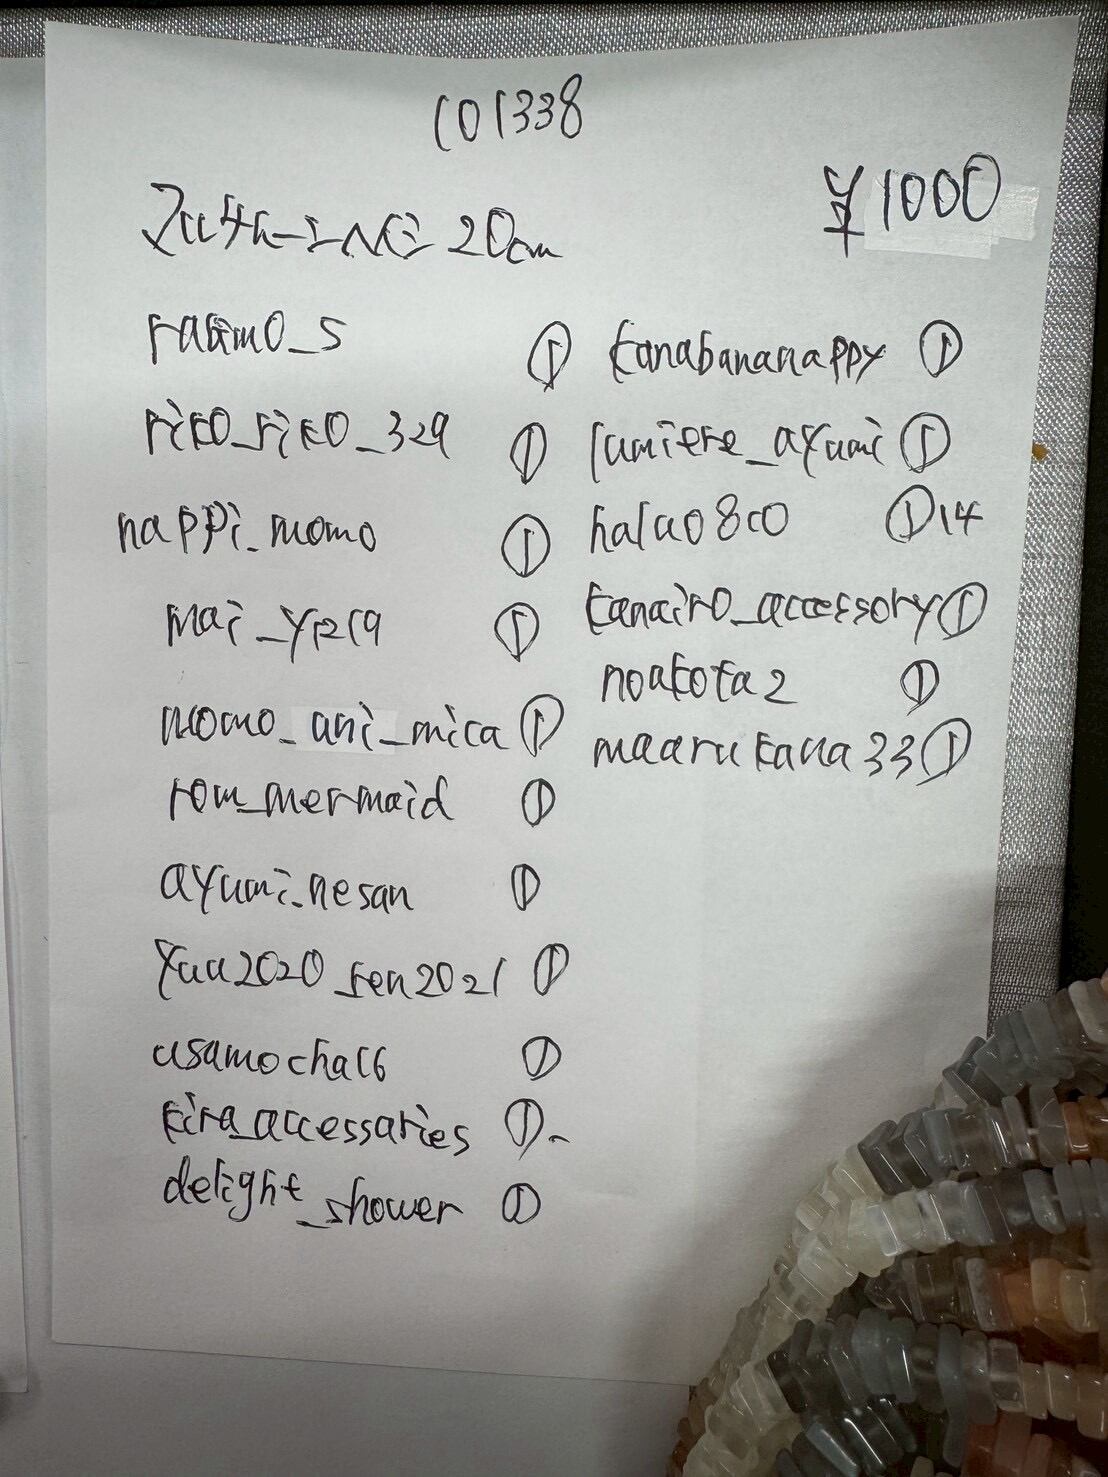 101338
マルチムーンスクエア 20cm
¥1000
rakimo_s ①
riko_riko_329 ①
nappi_momo ①
mai_yp219 ①
momo_ani_mica ①
rom_mermaid ①
ayumi_nesan ①
yuu2020_ren2021 ①
usamocha16 ①
kira_accessaries ①
delight_shower ①
kanabananappy ①
lumiere_ayumi ①
halu0800 ① 14
kanairo_accessory ①
noakota2 ①
maarukana33 ①